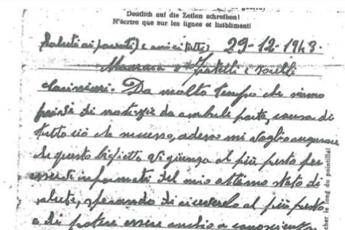 Deutlich auf die Zeilen schreiben!
N'écrire que sur les lignes et lisiblement!
Saluti ai parenti e amici tutti 29-12-1943.
Mamma e fratelli e sorelle
carissimi. Da molto tempo che siamo
privi di notizie da ambole parte, causa di
tutto ciò che successo, adesso mi voglio augurare
che questo biglietto vi giunga al più presto per
essere informati del mio ottimo stato di
salute, sperando di riceverlo al più presto
e di potere essere anchio a conoscenza